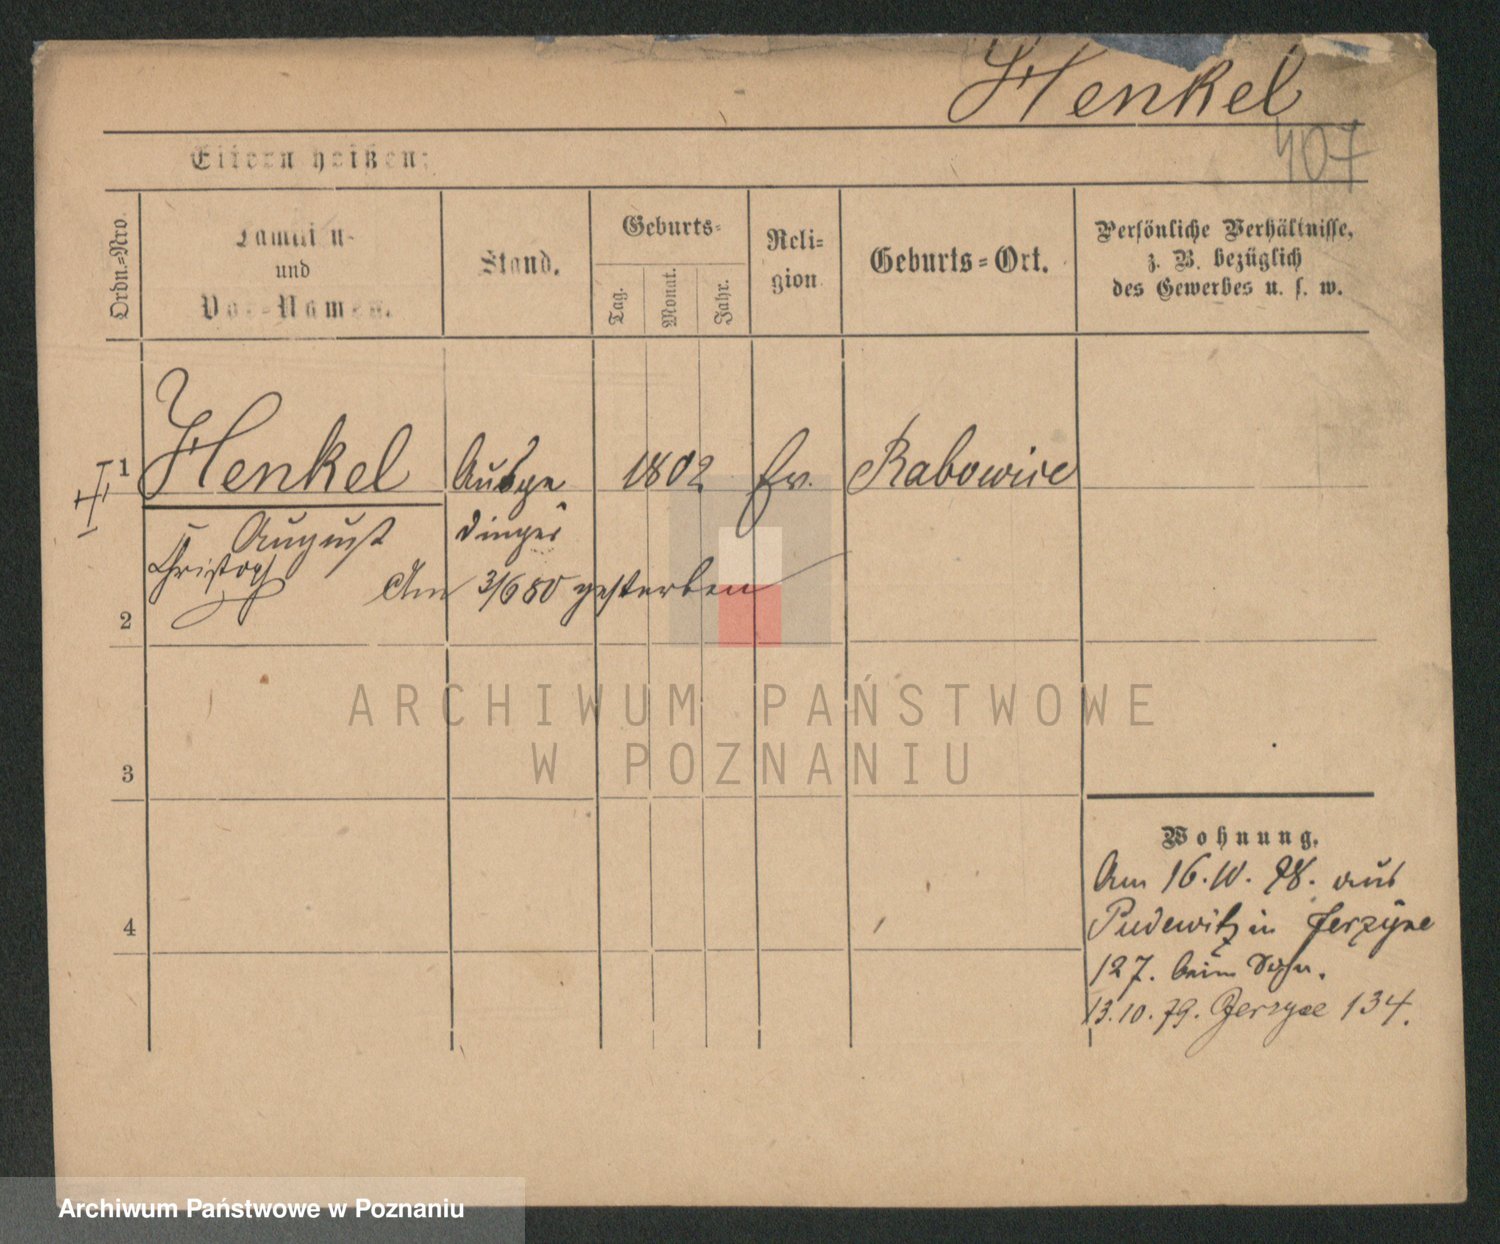 Henkel
407
Eltern heißen:
Ordn.=Nro.
Familien-
und
Vor=Namen.
Stand.
Geburts=
Tag.
Monat.
Jahr.
Reli=
gion
Geburts=Ort.
Persönliche Verhältnisse,
z. B. bezüglich
des Gewerbes u. s. w.
1 Henkel Ausge 1802 Ev. Rabowice
August dinger
Christoph
Am 3/6 80 gestorben
2
3
4
Wohnung.
Am 16. 10. 78. aus
Pudewitz in Jerzyce
127. beim Sohn.
13. 10. 79. Jerzyce 134.
ARCHIWUM PAŃSTWOWE
W POZNANIU
Archiwum Państwowe w Poznaniu